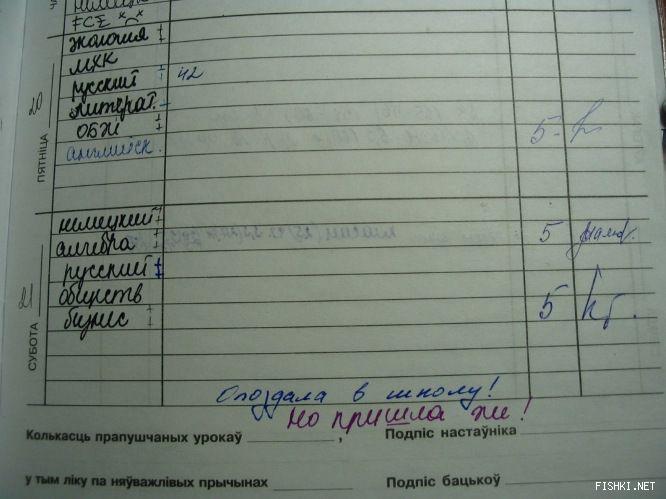 экология
МХК
русский 42
литерат.
ОБЖ 5-
английск.
ПЯТНІЦА 20
немецкий
алгебра 5
русский
обществ
бизнес 5
СУБОТА 21
Опоздала в школу!
Но пришла же!
Колькасць прапушчаных урокаў , Подпіс настаўніка
у тым ліку па няўважлівых прычынах Подпіс бацькоў
FISHKI.NET